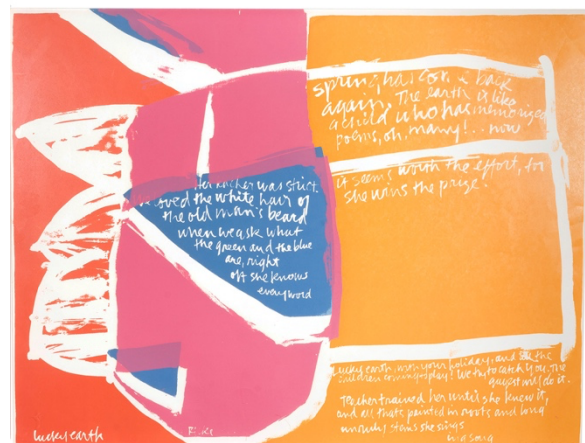 spring has come back
again. The earth is like
a child who has memorized
poems, oh, many!.. now
it seems worth the effort, for
she wins the prize.
Her teacher was strict.
we loved the white hair of
the old man's beard
when we ask what
the green and the blue
are, right
off she knows
every word
Lucky earth, with your holiday, and all the
children coming to play! We try to catch you. The
gayest will do it.
Teacher trained her until she knew it,
and all that's painted in roots and long
unruly stems she sings
in a song
lucky earth